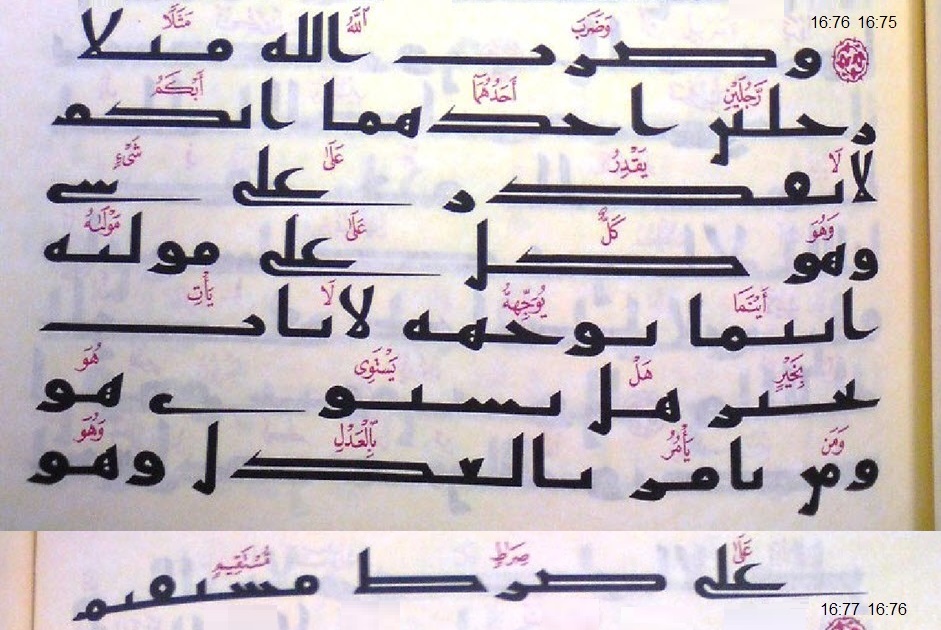 16:76 16:75
وَضَرَبَ ٱللَّهُ مَثَلًا
وضرب الله مثلا
رَّجُلَيْنِ أَحَدُهُمَآ أَبْكَمُ
رجلين احدهما ابكم
لَا يَقْدِرُ عَلَىٰ شَىْءٍ
لا يقدر على شى
وَهُوَ كَلٌّ عَلَىٰ مَوْلَىٰهُ
وهو كل على موليه
أَيْنَمَا يُوَجِّههُّ لَا يَأْتِ
اينما يوجهه لا يات
بِخَيْرٍ هَلْ يَسْتَوِى هُوَ
بخير هل يستوى هو
وَمَن يَأْمُرُ بِٱلْعَدْلِ وَهُوَ
ومن يامر بالعدل وهو
عَلَىٰ صِرَٰطٍ مُّسْتَقِيمٍ
على صرط مستقيم
16:77 16:76